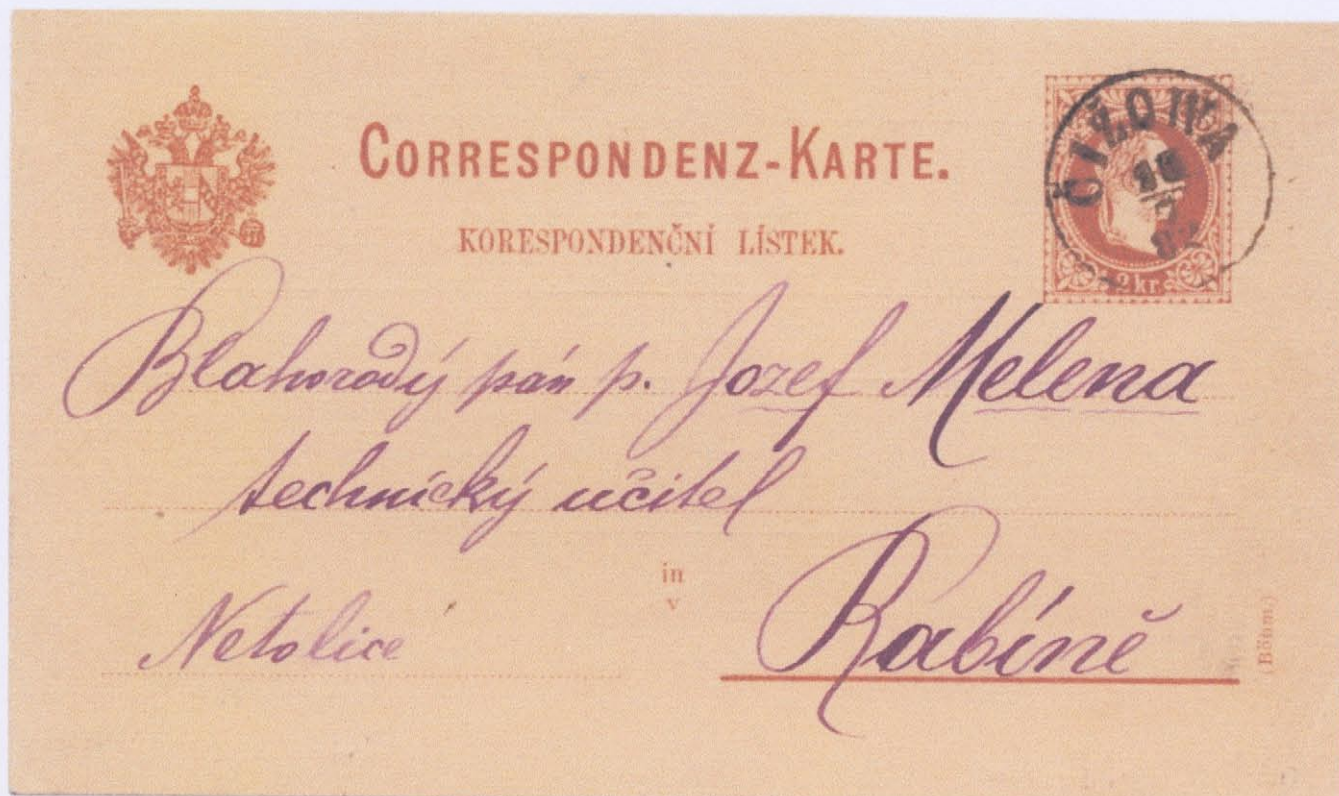 CORRESPONDENZ-KARTE.
KORESPONDENČNÍ LÍSTEK.
2 kr.
18
7
Blahorodý pán p. Jozef Melena
technický učitel
in
v
Netolice
Rabíně
(Böhm.)